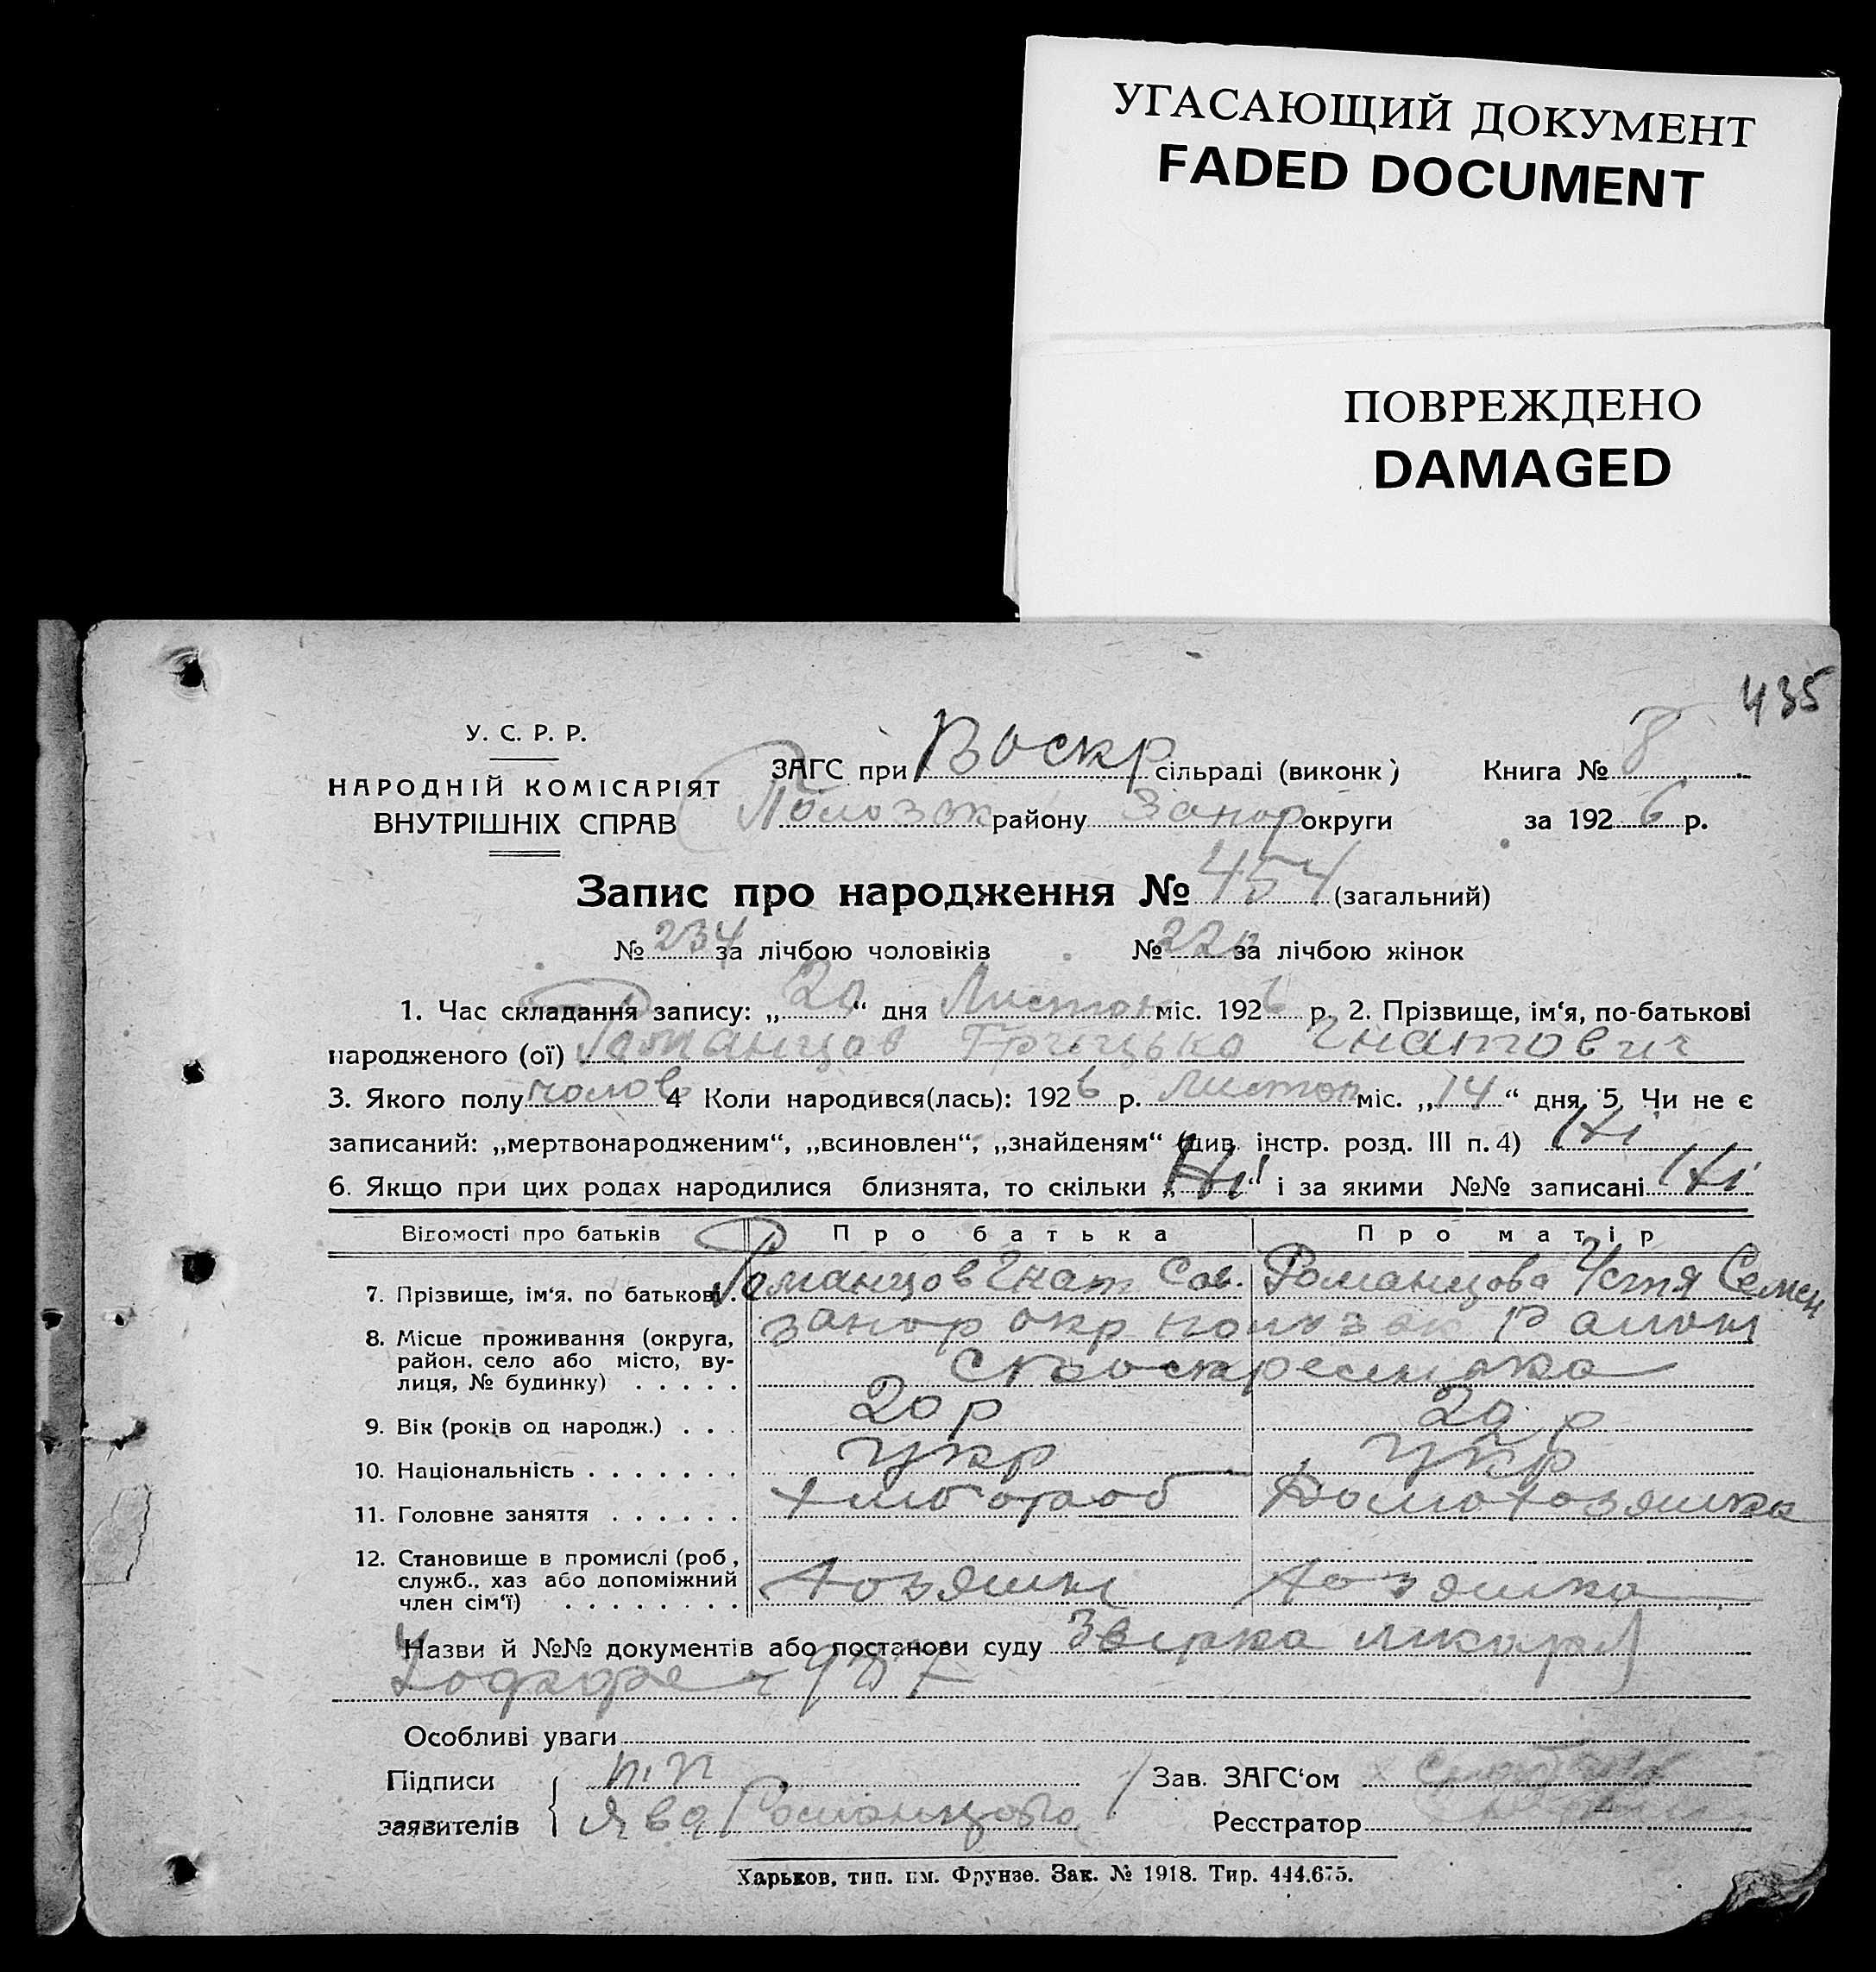 УГАСАЮЩИЙ ДОКУМЕНТ
FADED DOCUMENT
ПОВРЕЖДЕНО
DAMAGED
435
У. С. Р. Р.
НАРОДНІЙ КОМІСАРІЯТ
ВНУТРІШНІХ СПРАВ
ЗАГС при Воскр сільраді (виконк) Книга № 8
району Запор округи за 1926 р.
Запис про народження № 454 (загальний)
№ 234 за лічбою чоловіків № 220 за лічбою жінок
1. Час складання запису: „20“ дня Листоп міс. 1926 р. 2. Прізвище, ім‘я, по-батькові
народженого (ої) Романцов Грицько Гнатович
3. Якого полу чолов 4 Коли народився(лась): 1926 р. Листоп міс. „14“ дня 5. Чи не є
записаний: „мертвонародженим“, „всиновлен“, „знайденям“ (див. інстр. розд. III п. 4) Ні
6. Якщо при цих родах народилися близнята, то скільки „Ні“ і за якими №№ записані Ні
Відомості про батьків Про батька Про матір
7. Прізвище, ім‘я, по батькові. Романцов Гнат Сав. Романцова Устя Семен
8. Місце проживання (округа, запор окр район
район, село або місто, ву-
лиця, № будинку) . . . . .
9. Вік (років од народж.) . . . 20 р 20 р
10. Національність . . . . . . . укр укр
11. Головне заняття . . . . . . хлібороб Домохозяшка
12. Становище в промислі (роб,
служб., хаз або допоміжний хозяин хозяшка
член сім‘ї) . . . . . . . .
Назви й №№ документів або постанови суду
Особливі уваги
Підписи п. п Зав. ЗАГС‘ом
заявителів Романцова Реєстратор
Харьков, тип. им. Фрунзе. Зак. № 1918. Тир. 444.675.